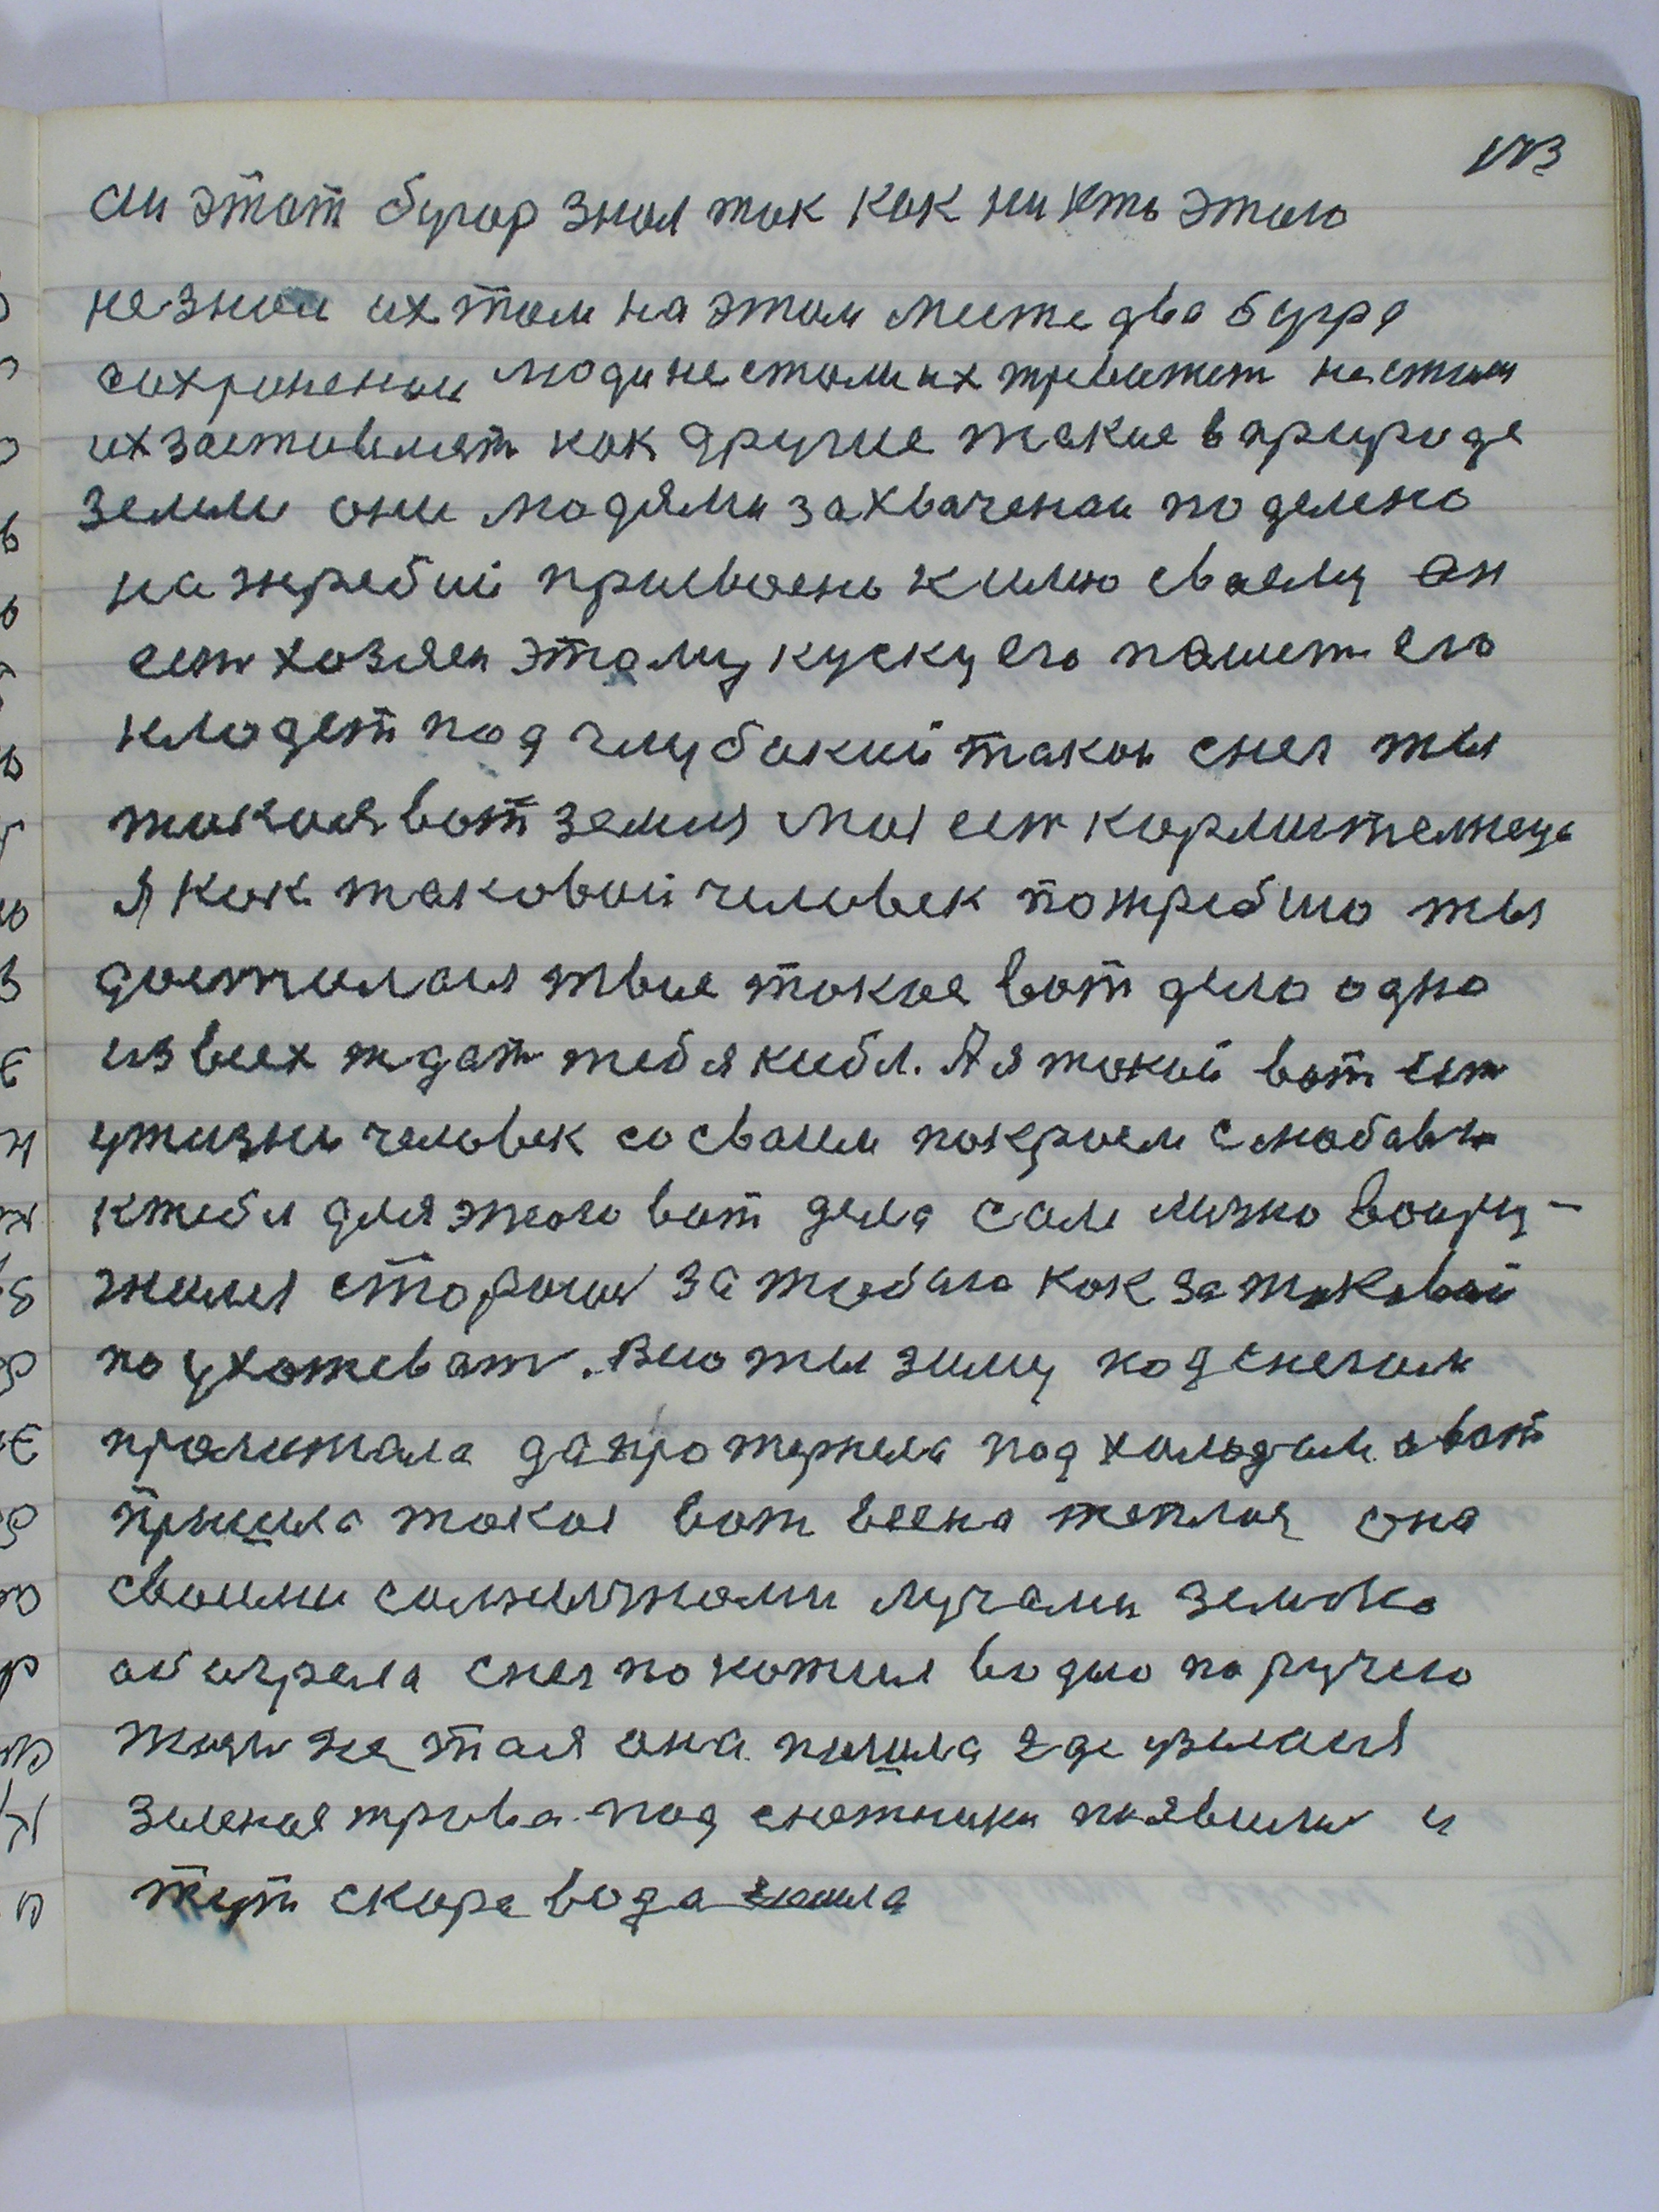 173
ли этот бугор знал так как ни хто этого
не знал их там на этом месте два бугра
сахраненаи люди не стали их тривожет не стали
их заставлят как другие такие в природе
земли они людями захваченаи поделено
на жребий присвоено к имю сваему он
ест хозяен этаму куску его пашет его
кладет под глубакий такои снег ты
такая вот земля моя ест кармителнеца
Я как таковои человек потребил ты
досталася твое такое вот дело одно
из всех ждат тебя к себе. А я такой вот ест
у жизни человек со своим покроем снабавю
к тебе для этого вот дела сам лично воару-
жился стороюс за табою как за таковой
по ухожеват. Всю ты зиму под снегом
пролижала да протерпела под холодам а вот
пришла такая вот весна теплая она
своими солнечнами лучами землю
абагрела снег покотил водою по ручею
тоди не тая она пошла где узялася
зеленая трава под снежники появилис и
тут скора вода пошла